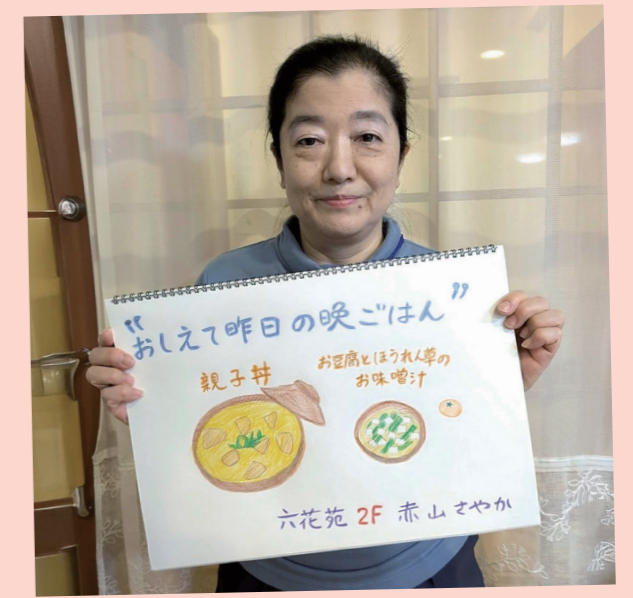 "おしえて昨日の晩ごはん"
親子丼
お豆腐とほうれん草の
お味噌汁
六花苑 2F 赤山さやか